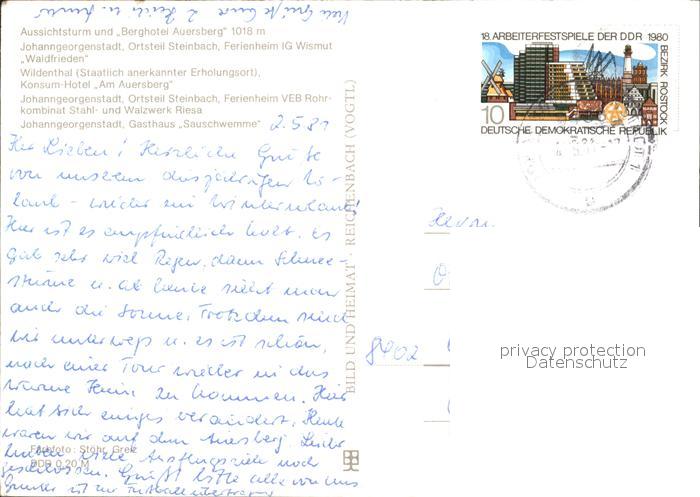 Aussichtsturm und „Berghotel Auersberg" 1018 m
Johanngeorgenstadt, Ortsteil Steinbach, Ferienheim IG Wismut
„Waldfrieden"
Wildenthal (Staatlich anerkannter Erholungsort),
Konsum-Hotel „Am Auersberg"
Johanngeorgenstadt, Ortsteil Steinbach, Ferienheim VEB Rohr-
kombinat Stahl- und Walzwerk Riesa
Johanngeorgenstadt, Gasthaus „Sauschwemme"
2.5.81
Ihr Lieben! Herzliche Grüße
von unserem diesjährigen Ur-
laub – wieder ein Winterurlaub!
Hier ist es empfindlich kalt. Es
gab sehr viel Regen, dann Schnee-
stürme u. ab heute sieht man
auch die Sonne. Trotzdem sind
wir unterwegs u. es ist schön,
nach einer Tour wieder in das
warme Heim zu kommen. Hier
hat sich einiges verändert. Heute
waren wir auf dem Auersberg. Leider
haben viele Ausflugsziele noch
geschlossen. Grüßt bitte alle von uns
Farbfoto: Stöhr, Greiz
DDR 0,20 M
BILD UND HEIMAT · REICHENBACH (VOGTL)
18. ARBEITERFESTSPIELE DER DDR 1980
BEZIRK ROSTOCK
10
DEUTSCHE DEMOKRATISCHE REPUBLIK
8902
privacy protection
Datenschutz